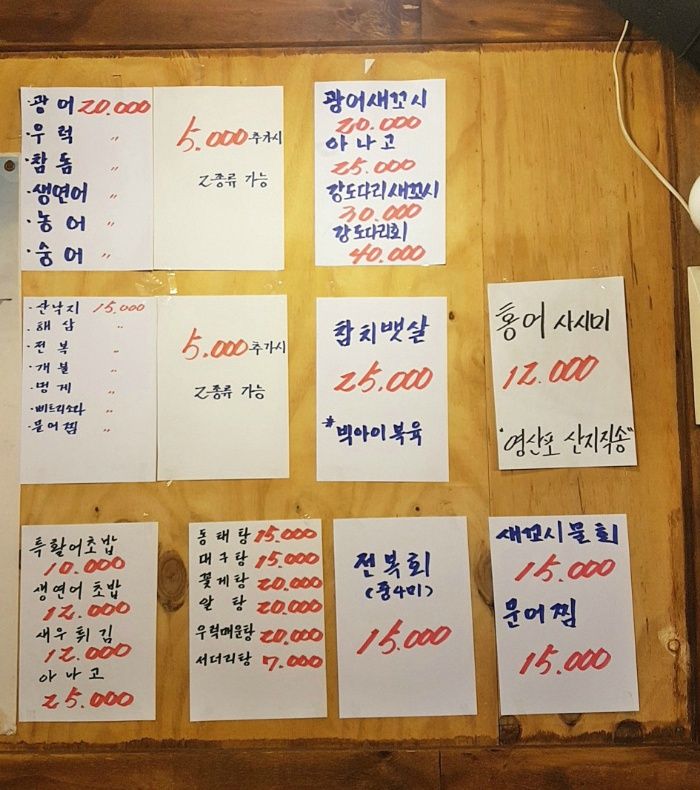 ·광어 20.000
·우럭 〃
·참돔 〃
·생연어 〃
·농어 〃
·숭어 〃
5.000 추가시
2종류 가능
광어새꼬시
20.000
아나고
25.000
강도다리새꼬시
30.000
강도다리회
40.000
·산낙지 15.000
·해삼 〃
·전복 〃
·개불 〃
·멍게 〃
·삐트리소라 〃
·문어찜 〃
5.000 추가시
2종류 가능
참치뱃살
25.000
*빅아이복육
홍어 사시미
12.000
"영산포 산지직송"
특활어초밥
10.000
생연어 초밥
12.000
새우튀김
12.000
아나고
25.000
동태탕 15.000
대구탕 15.000
꽃게탕 20.000
알탕 20.000
우럭매운탕 20.000
서더리탕 7.000
전복회
(중4미)
15.000
새꼬시물회
15.000
문어찜
15.000